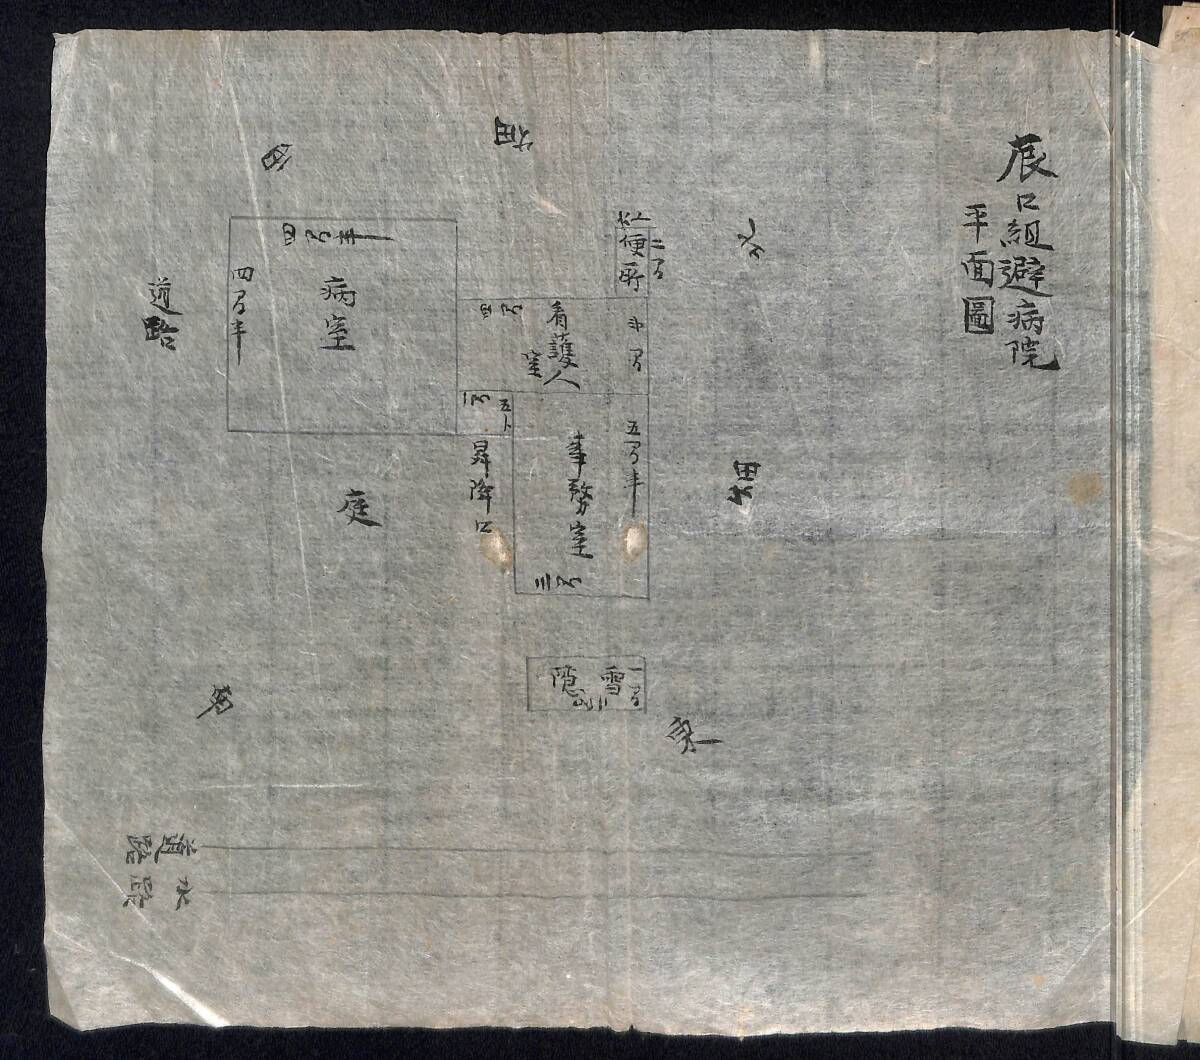 辰口組避病院
平面圖
北
二間
便所
畑
西
四間半
四間半
病室
道路
四間
看護人
室
一間
五尺
五間半
事務室
三間
昇降口
庭
畑
一間
雪
隠
二間
東
南
道路
水路